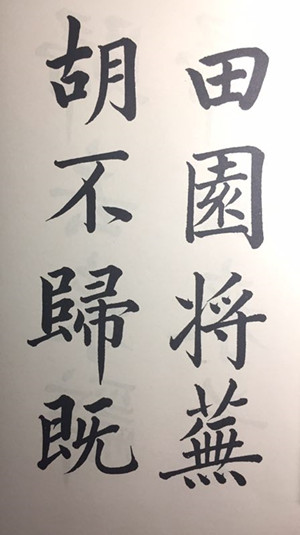 田園将蕪
胡不歸既